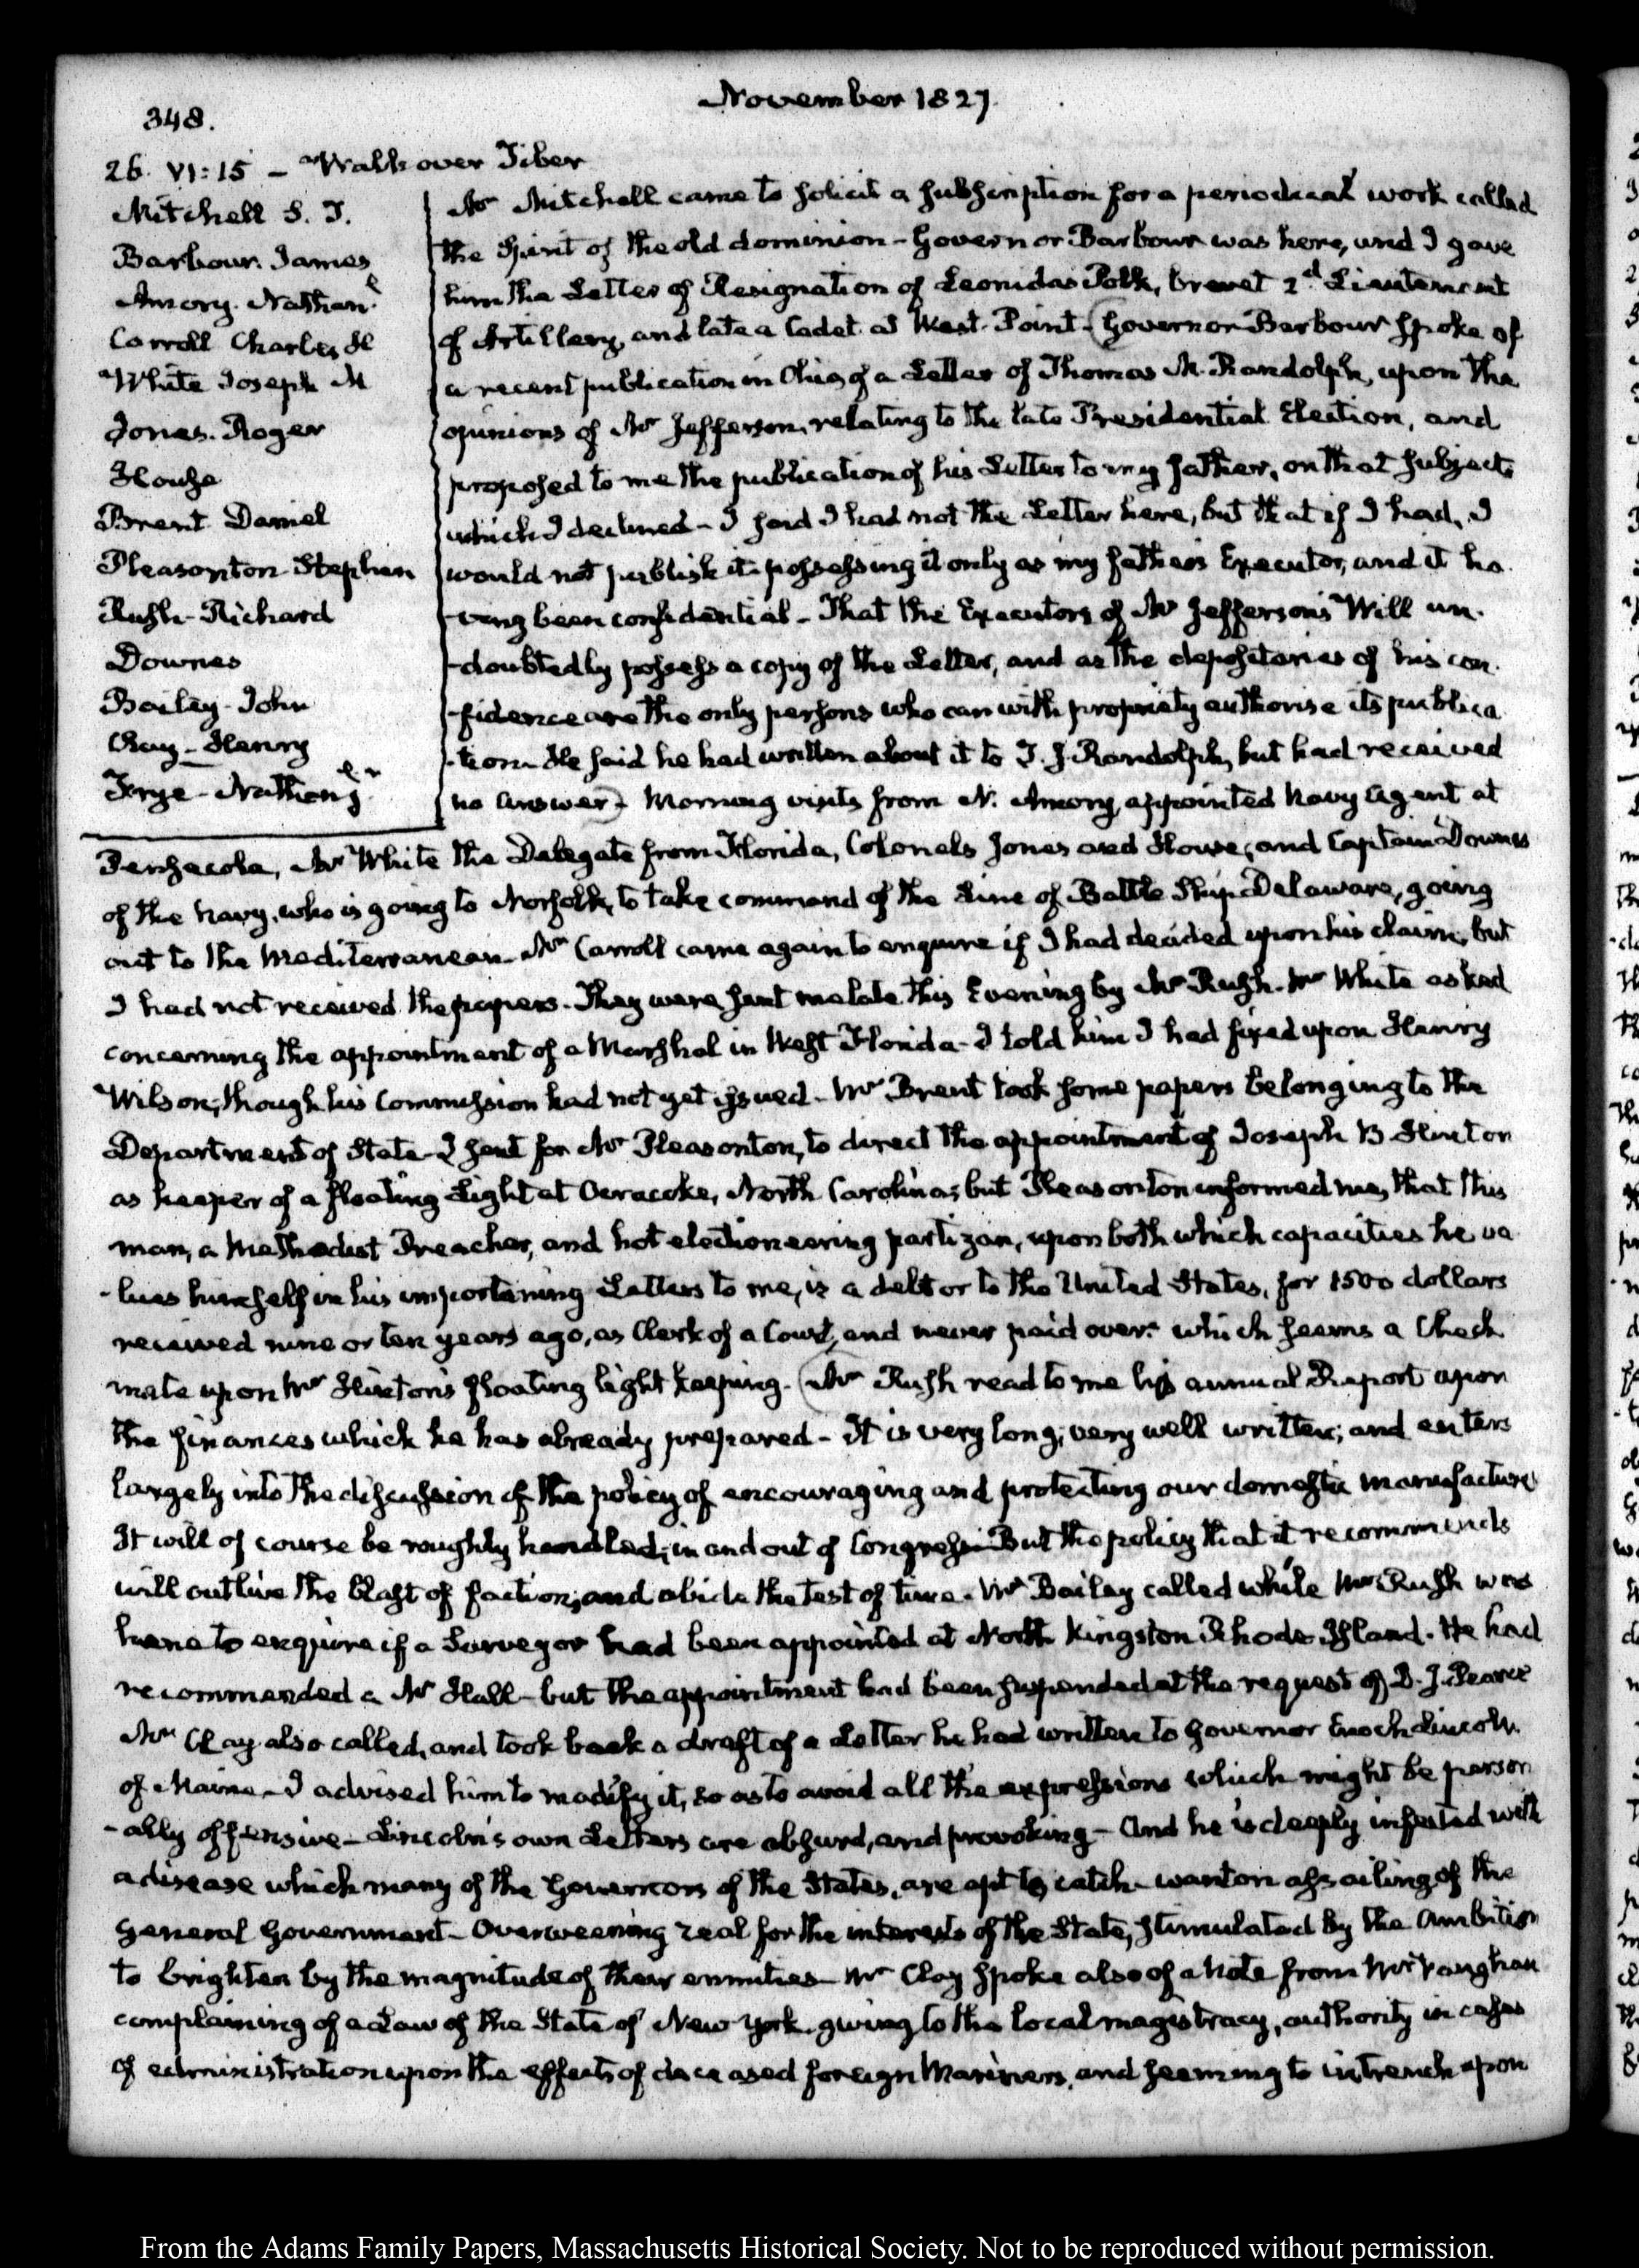 348.
November 1827.
26. VI:15 – Walk over Tiber
Mitchell S. T.
Barbour. James
Amory. Nathan.l
Carroll Charles H
White Joseph M
Jones. Roger
House
Brent Daniel
Pleasonton Stephen
Rush – Richard
Downes
Bailey – John
Clay – Henry
Frye – Nathan.l jr
Mr Mitchell came to solicit a subscription for a periodical work called
the Spirit of the old dominion – Governor Barbour was here, and I gave
him the Letter of Resignation of Leonidas Polk, brevet 2.d Lieutenant
of Artillery, and late a Cadet at West-Point – (Governor Barbour spoke of
a recent publication in Ohio, of a Letter of Thomas M. Randolph, upon the
opinions of Mr Jefferson, relating to the late Presidential Election, and
proposed to me the publication of his Letter to my father, on that subject,
which I declined – I said I had not the Letter here, but that if I had, I
would not publish it: possessing it only as my father's Executor, and it ha-
-ving been confidential – That the Executors of Mr Jefferson's Will un-
-doubtedly possess a copy of the Letter, and as the depositaries of his con-
-fidence are the only persons who can with propriety authorise its publica
-tion – He said he had written about it to T. J. Randolph, but had received
no answer) – Morning visits from N. Amory, appointed Navy Agent at
Pensacola, Mr White the Delegate from Florida, Colonels Jones and House, and Captain Downes
of the Navy, who is going to Norfolk, to take command of the Line of Battle Ship Delaware, going
out to the Mediterranean – Mr Carroll came again to enquire if I had decided upon his claim, but
I had not received the papers. They were sent me late this Evening by Mr Rush. Mr White asked
concerning the appointment of a Marshal in West Florida – I told him I had fixed upon Henry
Wilson, though his Commission had not yet issued – Mr Brent took some papers belonging to the
Department of State – I sent for Mr Pleasonton, to direct the appointment of Joseph B Hinton
as keeper of a floating Light at Ocracoke, North Carolina; but Pleasonton informed me, that this
man, a Methodist Preacher, and hot electioneering partizan, upon both which capacities he va
-lues himself in his importuning Letters to me, is a debtor to the United States, for 1500 dollars
received nine or ten years ago, as Clerk of a Court, and never paid over. which seems a Check
mate upon Mr Hinton's floating light keeping. (Mr Rush read to me his annual Report upon
the finances which he has already prepared – It is very long; very well written; and enters
largely into the discussion of the policy of encouraging and protecting our domestic manufactures
It will of course be roughly handled, in and out of Congress. But the policy that it recommends
will outlive the blast of faction, and abide the test of time. Mr Bailey called while Mr Rush was
here to enquire if a Surveyor had been appointed at North Kingston Rhode Island. He had
recommended a Mr Hall – but the appointment had been suspended at the request of D. J. Pearce
Mr Clay also called, and took back a draft of a Letter he had written to Governor Enoch Lincoln
of Maine – I advised him to modify it, so as to avoid all the expressions which might be person
-ally offensive – Lincoln's own Letters are absurd, and provoking – And he is deeply infected with
a disease which many of the Governors of the States, are apt to catch – wanton assailing of the
General Government – Overweening zeal for the interests of the State, stimulated by the ambition
to brighten by the magnitude of their enmities – Mr Clay spoke also of a Note from Mr Vaughan
complaining of a Law of the State of New York, giving to the local magistracy, authority in cases
of administration upon the effects of deceased foreign Mariners, and seeming to intrench upon
From the Adams Family Papers, Massachusetts Historical Society. Not to be reproduced without permission.